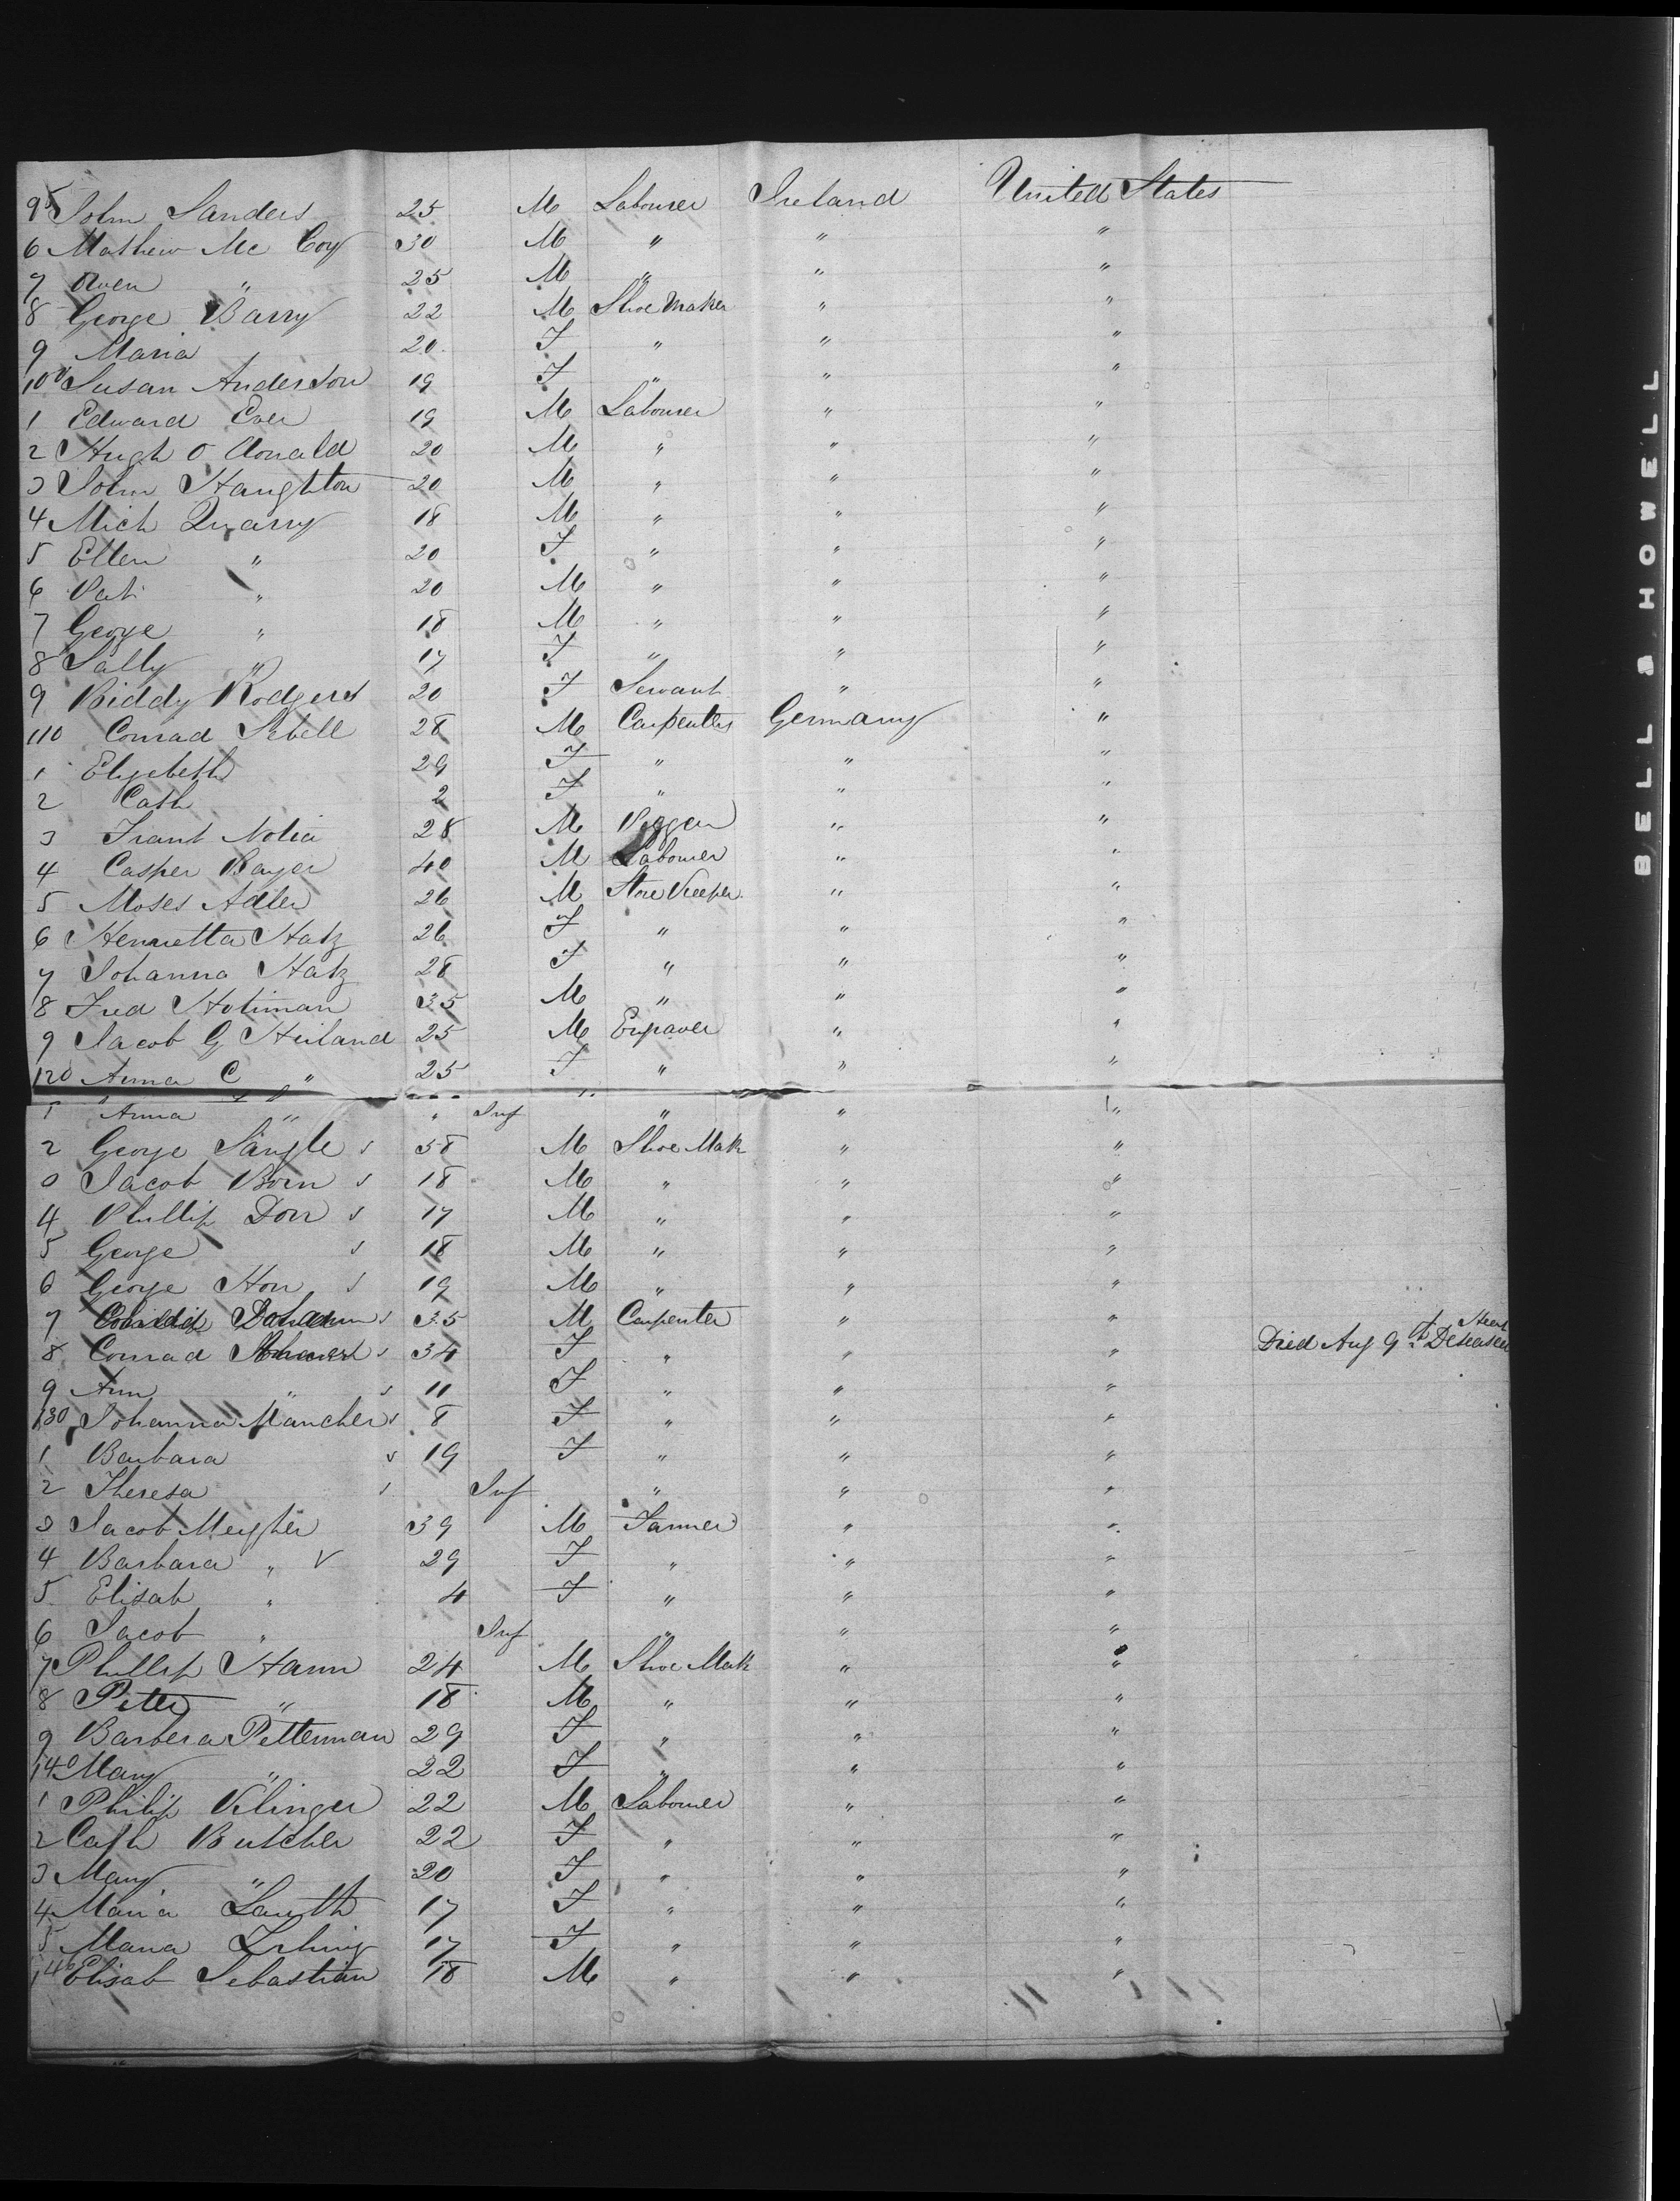 95 John Sanders 25 M Labourer Ireland United States
6 Mathew Mc Coy 30 M " " "
7 Owen " 25 M " " "
8 George Barry 22 M Shoe Maker " "
9 Maria 20 F " " "
100 Susan Anderson 19 F " " "
1 Edward Ever 19 M Labourer " "
2 Hugh O Donald 20 M " " "
3 John Haughton 20 M " " "
4 Mich Quarry 18 M " " "
5 Ellen " 20 F " " "
6 Pat " 20 M " " "
7 George " 18 M " " "
8 Sally " 17 F " " "
9 Biddy Rodgers 20 F Servant " "
110 Conrad Sebell 28 M Carpenter Germany "
1 Elizebeth 29 F " " "
2 Cath 2 F " " "
3 28 M " "
4 Casper Bayer 40 M Labourer " "
5 Moses Adler 26 M Store Keeper " "
6 Henrietta Hatz 26 F " " "
7 Johanna Hatz 28 F " " "
8 Fred 35 M " " "
9 Jacob G Heiland 25 M Engraver " "
120 Anna C " 25 F " " "
1 Anna " " Inf " " "
2 George Sangle s 38 M Shoe Mak " "
3 Jacob Born s 18 M " " "
4 Phillip Dorr s 17 M " " "
5 George s 18 M " " "
6 George Hon s 19 M " " "
7 s 35 M Carpenter " "
8 Conrad s 34 F " " " Died Aug 9th Deseased
9 Ann " s 11 F " " "
130 Johanna Mancher s 8 F " " "
1 Barbara s 19 F " " "
2 Theresa s Inf " " "
3 Jacob Meyher 39 M Farmer " "
4 Barbara " V 29 F " " "
5 Elisab " 4 F " " "
6 Jacob " Inf " " "
7 Phillip Hann 24 M Shoe Mak " "
8 Peter " 18 M " " "
9 Barbera Petterman 29 F " " "
140 Mary " 22 F " " "
1 Philip Klinger 22 M Labourer " "
2 Cath Butcher 22 F " " "
3 Mary " 20 F " " "
4 Maria Lauth 17 F " " "
5 Maria 17 F " " "
146 Elisab Sebastian 18 M " " "
BELL & HOWELL